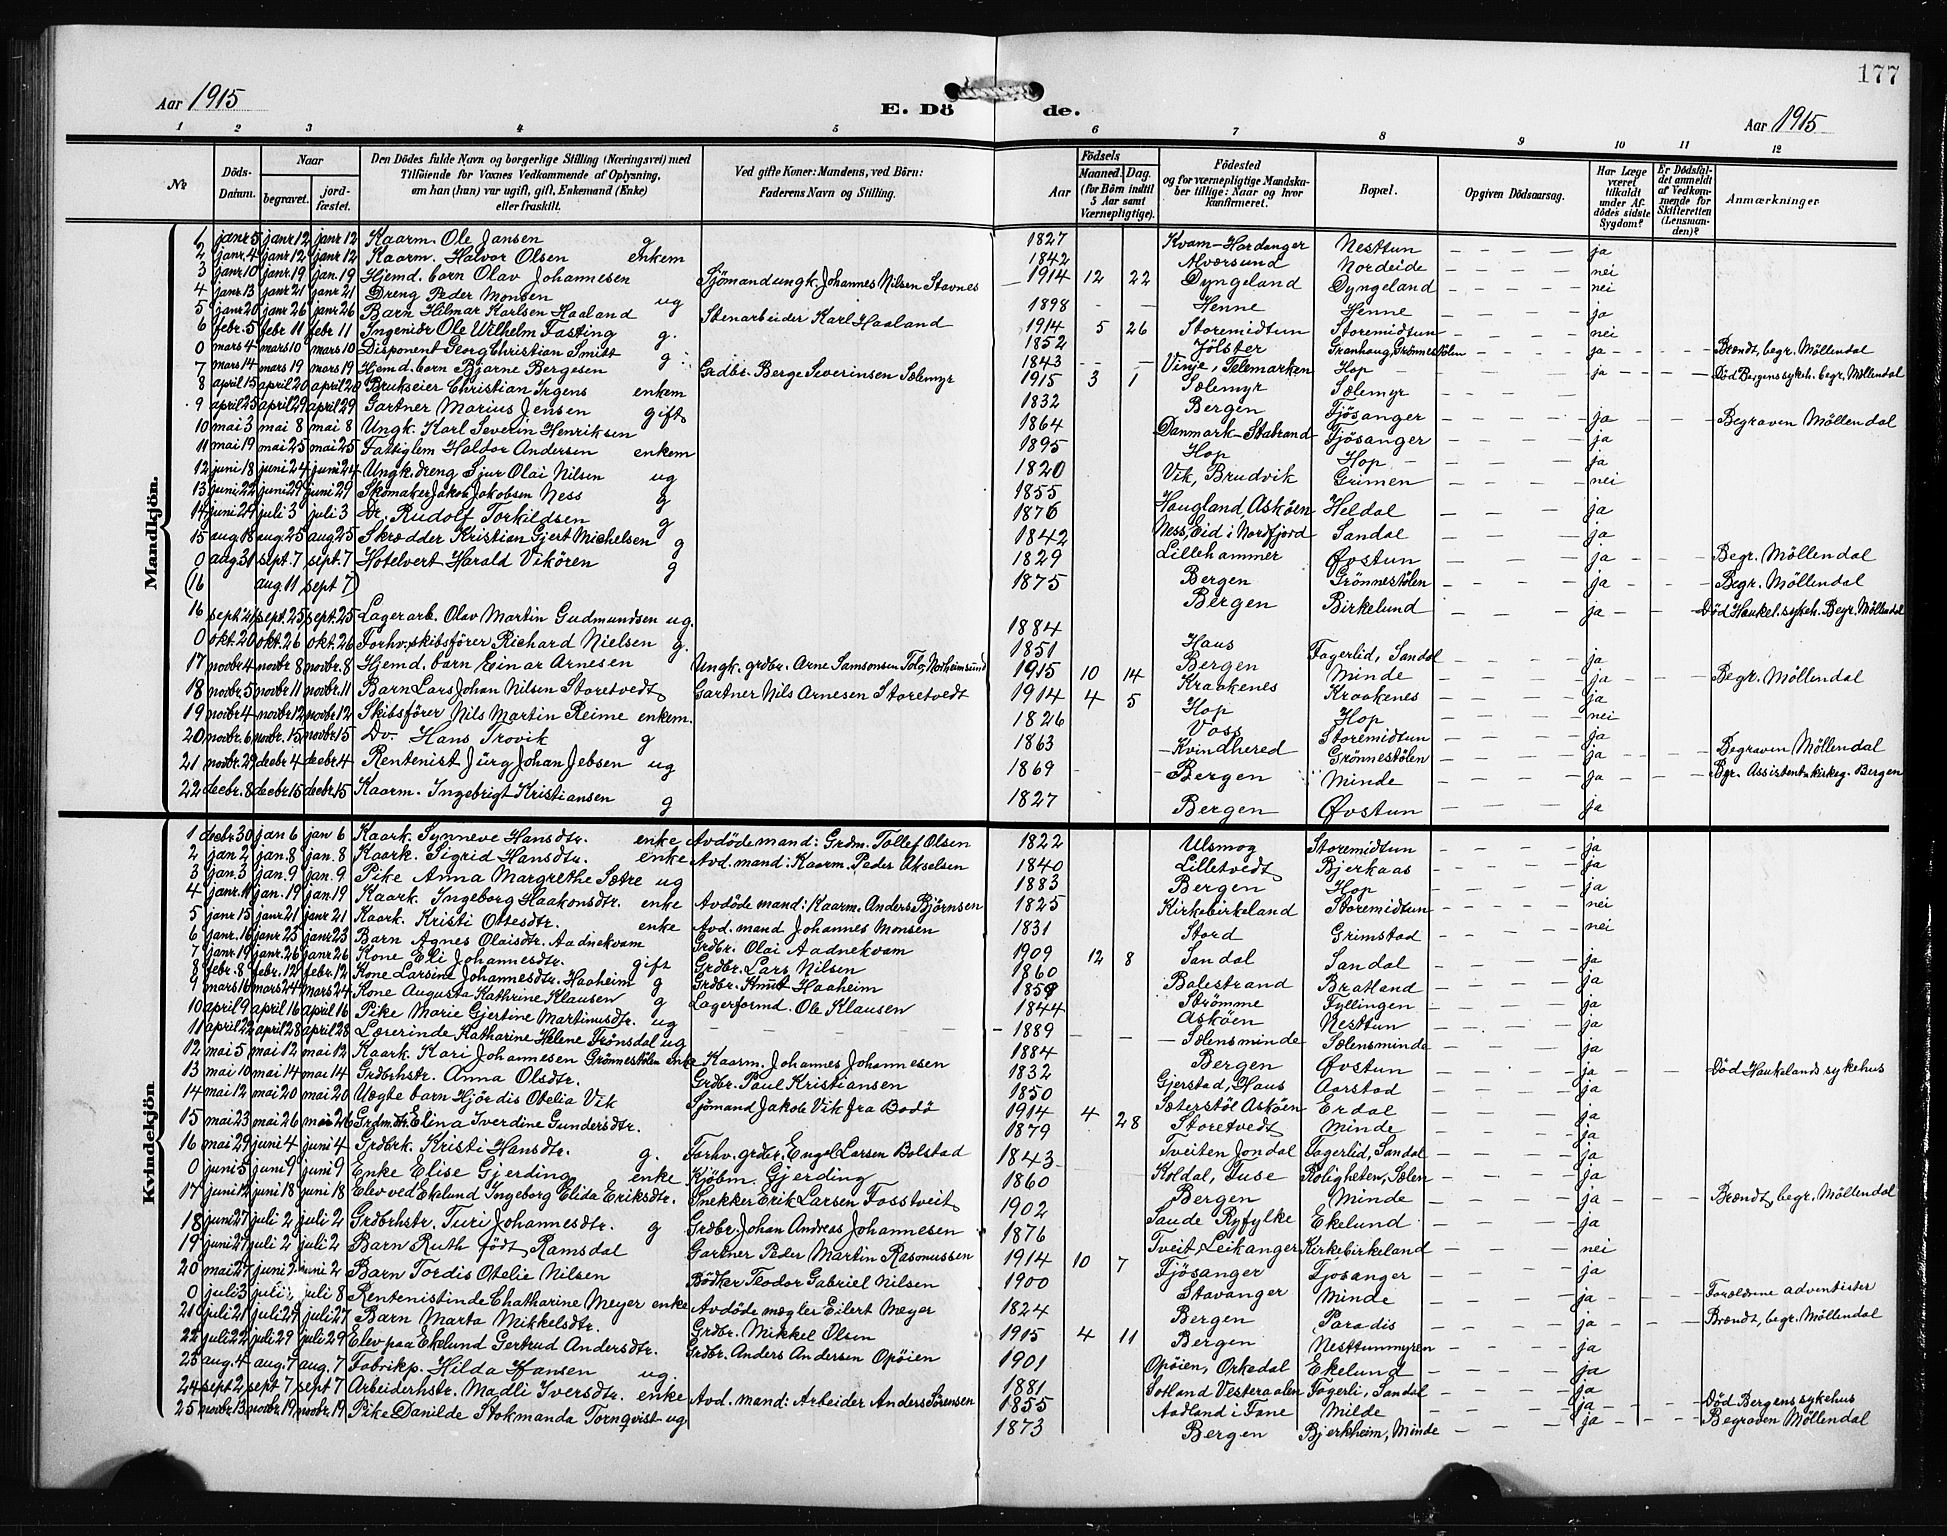 177
Aar 1915
E. Dö de.
Aar 1915
1 2 3 4 5 6 7 8 9 10 11 12
№
Döds-Datum.
Naar
begravet.
jord-fæstet.
Den Dödes fulde Navn og borgerlige Stilling (Næringsvei) med
Tilföiende for Voxnes Vedkommende af Oplysning,
om han (hun) var ugift, gift, Enkemand (Enke)
eller fraskilt.
Ved gifte Koner: Mandens, ved Börn:
Faderens Navn og Stilling.
Födsels
Aar
Maaned. Dag.
(for Börn indtil
5 Aar samt
Værnepligtige).
Födested
og for værnepligtige Mandska-
ber tillige: Naar og hvor
konfirmeret.
Bopæl.
Opgiven Dödsaarsag.
Har Læge
været
tilkaldt
under Af-
dödes sidste
Sygdom?
Er Dödsfal-
det anmeldt
af Vedkom-
mende for
Skifteretten
(Lensman-
den)?
Anmærkninger
Mandkjön.
1 janr 5 janr 12 janr 12 Kaarm. Ole Jansen g 1827 Kvam-Hardanger Nesttun ja
2 janr. 4 janr 12 janr 12 Kaarm. Halvor Olsen enkem 1842 Alversund Nordeide nei
3 janr 10 janr. 19 jan. 19 Hjemd. barn Olav Johannesen Sjömand ungk. Johannes Nilsen Stavnes 1914 12 22 Dyngeland Dyngeland nei
4 janr. 13 janr 21 janr 21 Dreng Peder Monsen ug 1898 Henne Henne ja
5 janr 20 janr 26 janr 26 Barn Hilmar Karlsen Haaland Stenarbeider Karl Haaland 1914 5 26 Storemidtun Storemidtun nei
6 febr. 5 febr 11 febr 11 Ingeniör Ole Wilhelm Fasting g. 1852 Jölster Granhaug, Grönnestölen ja Brændt, begr. Möllendal
0 mars 4 mars 10 mars 10 Disponent Georg Christian Smitt g 1843 Vinje, Telemarken Hop ja Död Bergens sykeh. begr. Möllendal
7 mars 14 mars 19 mars 19 Hjemd. barn Bjarne Bergesen Grdbr. Berge Severinsen Sælemyr 1915 3 1 Sælemyr Sælemyr
8 april 15 april 20 april 20 Brukseier Christian Irgens enkem 1832 Bergen Fjösanger ja Begraven Möllendal
9 april 25 april 29 april 29 Gartner Marius Jensen gift 1864 Danmark Fjösanger ja
10 mai 3 mai 8 mai 8 Ungk. Karl Severin Henriksen 1895 Hop Hop ja
11 mai 19 mai 25 mai 25 Fattiglem Haldor Andersen enkem 1820 Vik, Brudvik Grimen nei
12 juni 18 juni 24 juni 24 Ungk. dreng Sjur Olai Nilsen ug 1855 Haugland, Asköen Heldal ja
13 juni 22 juni 29 juni 29 Skomaker Jakob Jakobsen Ness g 1876 Ness, Eid i Nordfjord Sandal ja
14 juni 24 juli 3 juli 3 Dr. Rudolf Torkildsen g 1842 Lillehammer Øvstun ja Begr. Möllendal
15 aug 18 aug. 25 aug 25 Skrædder Kristian Gjert Michelsen g 1829 Bergen Grönnestölen ja Begr. Möllendal
0 aug 31 sept. 7 sept. 7 Hotelvert Harald Vikören g 1875 Bergen Birkelund ja Död Haukel. sykeh. Begr. Möllendal
(16 aug 11 sept 7)
16 sept 21 sept. 25 sept. 25 Lagerarb. Olav Martin Gudmundsen ug. 1884 Haus Fagerlid, Sandal ja
0 okt. 20 okt. 26 okt. 26 Forhv. skibsförer Richard Nielsen g. 1851 Bergen Minde ja Begr. Möllendal
17 novbr 4 novbr 8 novbr. 8 Hjemd. barn Einar Arnesen Ungk. grdbr. Arne Samsonsen Tolo, Norheimsund 1915 10 14 Kraakenes Kraakenes ja
18 novbr. 5 novbr 11 novbr. 11 Barn Lars Johan Nilsen Storetvedt Gartner Nils Arnesen Storetvedt 1914 4 5 Hop Hop nei
19 novbr 4 novbr 12 novbr 12 Skibsförer Nils Martin Reime enkem. 1826 Voss Storemidtun ja
20 novbr. 6 novbr. 15 novbr 15 Dv. Hans Trovik g 1863 Kvindhered Grönnestölen ja Begraven Möllendal
21 novbr. 29 decbr 4 decbr 4 Rentenist Jürg Johan Jebsen ug 1869 Bergen Minde ja Bgr. Assistentkirkeg. Bergen
22 decbr. 8 decbr 15 decbr. 15 Kaarm. Ingebrigt Kristiansen g 1827 Bergen Øvstun ja
Kvindekjön
1 decbr. 30 jan 6 jan 6 Kaark. Synneve Hansdtr. enke Avdöde mand: Grdm. Tollef Olsen 1822 Ulsmog Storemidtun ja
2 jan 2 jan. 8 jan. 8 Kaark. Sigrid Hansdtr. enke Avd. mand: Kaarm. Peder Akselsen 1840 Lilletvedt Bjerkaas ja
3 jan. 3 jan. 9 jan. 9 Pike Anna Margrethe Sætre ug 1883 Bergen Hop ja
4 janr. 11 jan. 19 jan. 19 Kaark. Ingeborg Haakonsdtr. enke Avdöde mand: Kaarm. Anders Björnsen 1825 Kirkebirkeland Storemidtun nei
5 janr 15 janr 21 janr 21 Kaark. Kristi Ottesdtr. enke Avd. mand Johannes Monsen 1831 Stord Grimstad nei
6 janr. 16 janr 23 janr 23 Barn Agnes Olaisdtr. Aadnekvam Grdbr. Olai Aadnekvam 1909 12 8 Sandal Sandal ja
7 janr 19 janr. 26 janr 26 Kone Eli Johannesdtr. gift Grdbr. Lars Nilsen 1860 Balestrand Bratland ja
8 febr. 8 febr. 12 febr. 12 Kone Larsine Johannesdtr. Haaheim g Grdbr. Knut Haaheim 1859 Strömme Fyllingen ja
9 mars 18 mars 24 mars 24 Kone Augusta Kathrine Klausen g Lagerformd. Ole Klausen 1844 Asköen Nesttun ja
10 april 9 april 16 april 16 Pike Marie Gjertine Martinusdtr. ug 1889 Sælensminde Sælensminde ja
11 april 22 april 28 april 28 Lærerinde Katharine Helene Frönsdal ug 1884 Bergen Øvstun ja Död Haukelands sykehus
12 mai 5 mai 12 mai 12 Kaark. Kari Johannesen Grönnestölen enke Kaarm. Johannes Johannesen 1832 Gjerstad, Haus Aarstad ja
13 mai 10 mai 14 mai 14 Grdbrhstr. Anna Olsdtr. Grdbr. Paul Kristiansen 1850 Sæterstöl Asköen Erdal ja
14 mai 12 mai 20 mai 20 Uegte barn Hjördis Otelia Vik Sjömand Jakob Vik fra Bodö 1914 4 28 Storetvedt Minde ja
15 mai 23 mai 26 mai 26 Grdm. dtr. Elina Iverdine Gundersdtr. 1879 Tveiten Jondal Fagerlid, Sandal ja
16 mai 29 juni 4 juni 4 Grdbrk. Kristi Hansdtr. g. Forhv. grdbr. Engel Larsen Bolstad 1843 Koldal, Tuse Roligheten, Sælen ja
0 juni 5 juni 9 juni 9 Enke Elise Gjerding enke Kjöbm. Gjerding 1860 Bergen Minde ja Brændt, begr. Möllendal
17 juni 12 juni 18 juni 18 Elev ved Ekelund Ingeborg Elida Eriksdtr. Snekker Erik Larsen Fosstveit 1902 Saude Ryfylke Ekelund ja
18 juni 27 juli 2 juli 2 Grdbrhstr. Turi Johannesdtr. g Grdbr. Johan Andreas Johannesen 1876 Tveit, Leikanger Kirkebirkeland nei
19 juni 27 juli 2 juli 2 Barn Ruth födt Ramsdal Gartner Peder Martin Rasmussen 1914 10 7 Fjösanger Fjösanger ja
20 mai 27 juni 2 juni 2 Barn Tordis Otelie Nilsen Bödker Teodor Gabriel Nilsen 1900 Stavanger Minde ja Forældrene adventister
0 juli 3 juli 8 Rentenistinde Chatharine Meyer enke Avdöde mægler Eilert Meyer 1824 Bergen Paradis ja Brændt, begr. Möllendal
21 juli 21 juli 27 juli 27 Barn Marta Mikkelsdtr. Grdbr. Mikkel Olsen 1915 4 11 Bergen Nesttunmyren ja
22 juli 22 juli 29 juli 29 Elev paa Ekelund Gertrud Andersdtr. Grdbr. Anders Andersen Opöien 1901 Opöien, Orkedal Ekelund ja
23 aug. 4 aug. 7 aug. 7 Fabrikp. Hilda Hansen ug. 1881 Vesteraalen Fagerli, Sandal ja
24 sept 2 sept 7 sept 7 Arbeiderhstr. Madli Iversdtr. enke Avd. mand: Arbeider Anders Sörensen 1855 Aadland i Fane Milde ja Död Bergens sykehus
25 novbr 13 novbr 19 novbr. 19 Pike Danilde Stokmanda Tornqvist ug 1873 Bergen Bjerkheim, Minde ja Begraven Möllendal